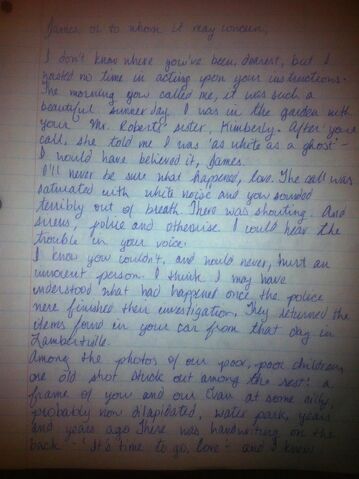 James or to whom it may concern,
I don't know where you've been, dearest, but I
wasted no time in acting upon your instructions.
The morning you called me, it was such a
beautiful summer day. I was in the garden with
your Mr. Roberts' sister, Kimberly. After your
call, she told me I was 'as white as a ghost' -
I would have believed it, James.
I'll never be sure what happened, love. The call was
saturated with white noise and you sounded
terribly out of breath. There was shouting. And
sirens, police and otherwise. I could hear the
trouble in your voice.
I know you couldn't, and would never, hurt an
innocent person. I think I may have
understood what had happened once the police
were finished their investigation. They returned the
items found in your car from that day in
Lambertville.
Among the photos of our poor, poor children,
one old shot stuck out among the rest: a
frame of you and our Evan at some silly,
probably now dilapidated, water park, years
and years ago. There was handwriting on the
back - 'It's time to go, love' - and I knew